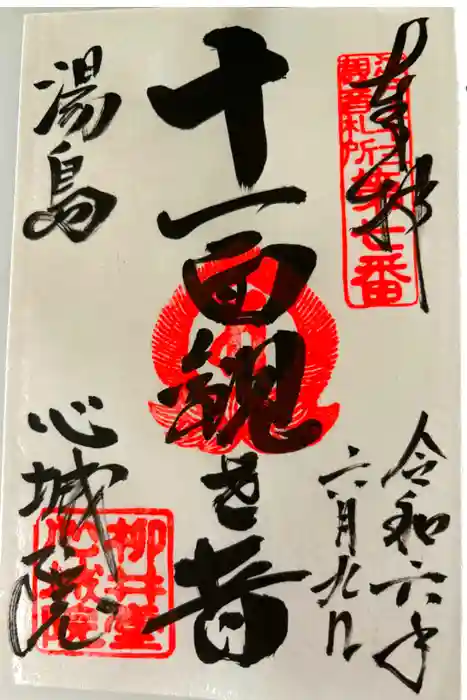 奉拝
観音札所
第七番
令和六年
六月九日
十一面観世音
湯島
心城院
柳井堂
心城院